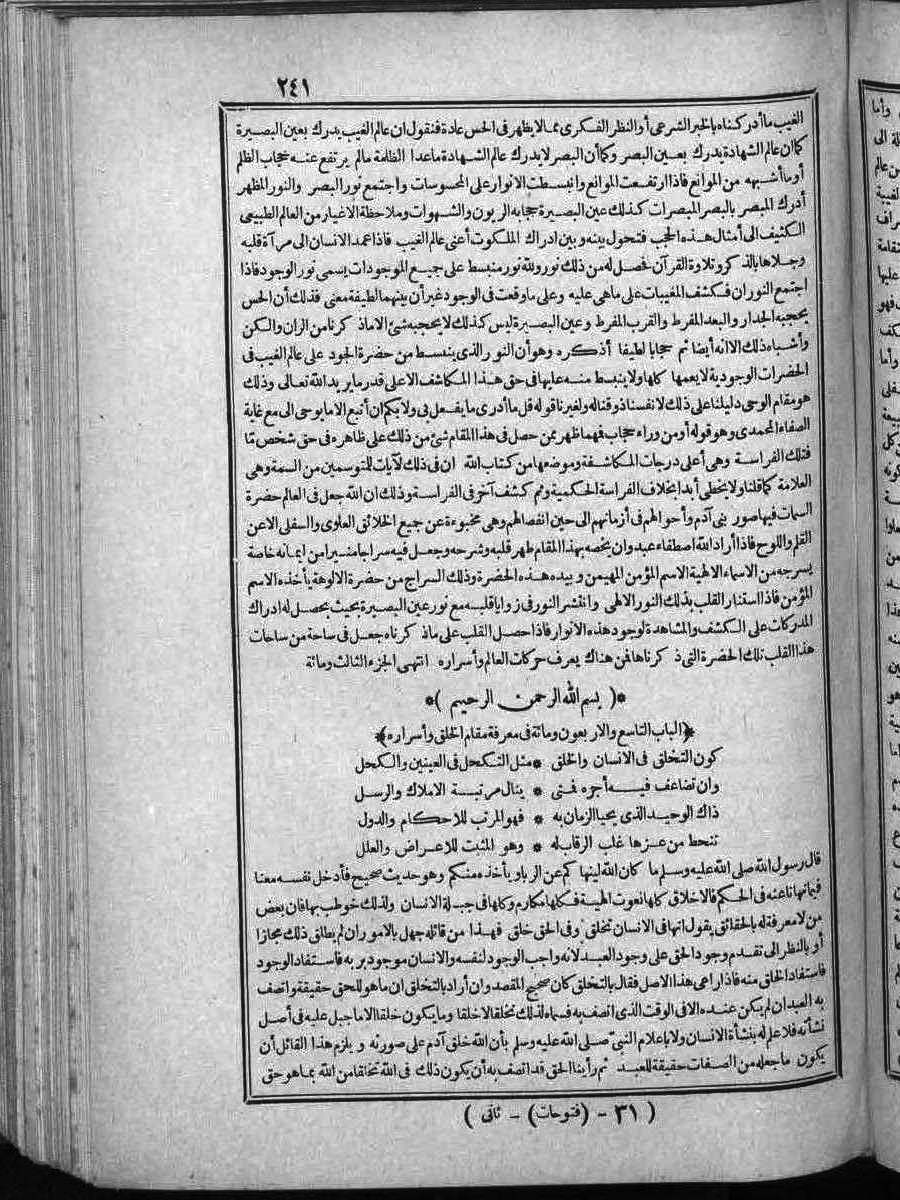 ٢٤١
الغيب ما أدركناه بالخبر الشرعي أو النظر الفكري مما لا يظهر في الحس عادة فنقول ان عالم الغيب يدرك بعين البصيرة
كما ان عالم الشهادة يدرك بعين البصر وكما أن البصر لا يدرك عالم الشهادة ما عدا الظلمة مالم يرتفع عنه حجاب الظلم
أو ما أشبهه من الموانع فاذا ارتفعت الموانع وانبسطت الانوار على المحسوسات واجتمع نور البصر والنور المظهر
أدرك المبصر بالبصر المبصرات كذلك عين البصيرة حجابه الريون والشهوات وملاحظة الاغيار من العالم الطبيعي
الكثيف الى أمثال هذه الحجب فتحول بينه وبين ادراك الملكوت أعني عالم الغيب فاذا عمد الانسان الى مرآة قلبه
وجلاها بالذكر وتلاوة القرآن فحصل له من ذلك نور ولله نور منبسط على جميع الموجودات يسمى نور الوجود فاذا
اجتمع النوران فكشف المغيبات على ماهي عليه وعلى ما وقعت في الوجود غير أن بينهما لطيفة معنى فذلك أن الحس
يحجبه الجدار والبعد المفرط والقرب المفرط وعين البصيرة ليس كذلك لا يحجبه شئ الا ما ذكرنا من الران والكن
وأشباه ذلك الا انه أيضا ثم حجابا لطيفا أذكره وهو أن النور الذي ينبسط من حضرة الجود على عالم الغيب في
الحضرات الوجودية لا يعمها كلها ولا ينبسط منه عليها في حق هذا المكاشف الا على قدر ما يريد الله تعالى وذلك
هو مقام الوحي دليلنا على ذلك لانفسنا ذوقنا له ولغيرنا قوله قل ما أدري ما يفعل بي ولا بكم ان أتبع الا ما يوحى الى مع غاية
الصفاء المحمدي وهو قوله أو من وراء حجاب فهما ظهر ممن حصل في هذا المقام شئ من ذلك على ظاهره في حق شخص مّا
فتلك الفراسة وهي أعلى درجات المكاشفة وموضعها من كتاب الله ان في ذلك لآيات للمتوسمين من السمة وهي
العلامة كما قلنا ولا يخطى أبدا بخلاف الفراسة الحكمية وثم كشف آخر في الفراسة وذلك ان الله جعل في العالم حضرة
السمات فيها صور بني آدم وأحوالهم في أزمانهم الى حين انفصالهم وهي مخبوءة عن جميع الخلائق العلوي والسفلي الا عن
القلم واللوح فاذا أراد الله اصطفاء عبد وان يخصه بهذا المقام طهر قلبه وشرحه وجعل فيه سراجا منيرا من ايمانه خاصة
يسرجه من الاسماء الالهية الاسم المؤمن المهيمن وبيده هذه الحضرة وذلك السراج من حضرة الالوهة يأخذه الاسم
المؤمن فاذا استنار القلب بذلك النور الالهي وانتشر النور في زوايا قلبه مع نور عين البصيرة بحيث يحصل له ادراك
المدركات على الكشف والمشاهدة لوجود هذه الانوار فاذا حصل القلب على ما ذكرناه جعل في ساحة من ساحات
هذا القلب تلك الحضرة التي ذكرناها فمن هناك يعرف حركات العالم وأسراره انتهى الجزء الثالث ومائة
*( بسم الله الرحمن الرحيم )*
﴿الباب التاسع والاربعون ومائة في معرفة مقام الخلق وأسراره﴾
كون التخلق في الانسان والخلق * مثل التكحل في العينين والكحل
وان تضاعف فيه أجره فتى * ينال مرتبة الاملاك والرسل
ذاك الوحيد الذي يحيا الزمان به * فهو المرتب للاحكام والدول
تنحط من عزها غلب الرقاب له * وهو المثبت للاعراض والعلل
قال رسول الله صلى الله عليه وسلم ما كان الله لينهاكم عن الربا ويأخذه منكم وهو حديث صحيح فأدخل نفسه معنا
فيما نهانا عنه في الحكم فالاخلاق كلها نعوت الهية فكلها مكارم وكلها في جبلة الانسان ولذلك خوطب بها فان بعض
من لا معرفة له بالحقائق يقول انها في الانسان تخلق وفي الحق خلق فهذا من قائله جهل بالامور ان لم يطلق ذلك مجازا
أو بالنظر الى تقدم وجود الحق على وجود العبد لانه واجب الوجود لنفسه والانسان موجود بربه فاستفاد الوجود
فاستفاد الخلق منه فاذا راعى هذا الاصل فقال بالتخلق كان صحيح المقصد وان أراد بالتخلق ان ما هو للحق حقيقة واتصف
به العبد ان لم يكن عنده الا في الوقت الذي اتصف به فسماه لذلك تخلقا لا خلقا وما يكون خلقا الا ما جبل عليه في أصل
نشأته فلا علم له بنشأة الانسان ولا باعلام النبي صلى الله عليه وسلم بأن الله خلق آدم على صورته ويلزم هذا القائل أن
يكون ما جعله من الصفات حقيقة للعبد ثم رأينا الحق قد اتصف به أن يكون ذلك في الله تخلقا من الله بما هو حق
( ٣١ - (فتوحات) - ثاني )